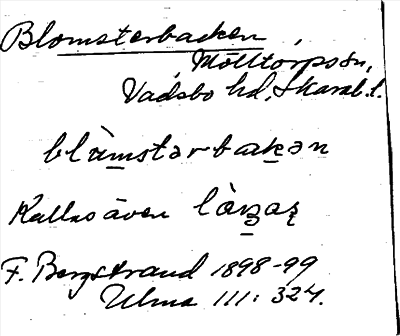 Blomsterbacken,
Mölltorps sn,
Vadsbo hd, Skarab. l.
blɯ̀mstərbakən
Kallas även lɑ̀ŋar
F. Bergstrand 1898-99
Ulma 111: 324.